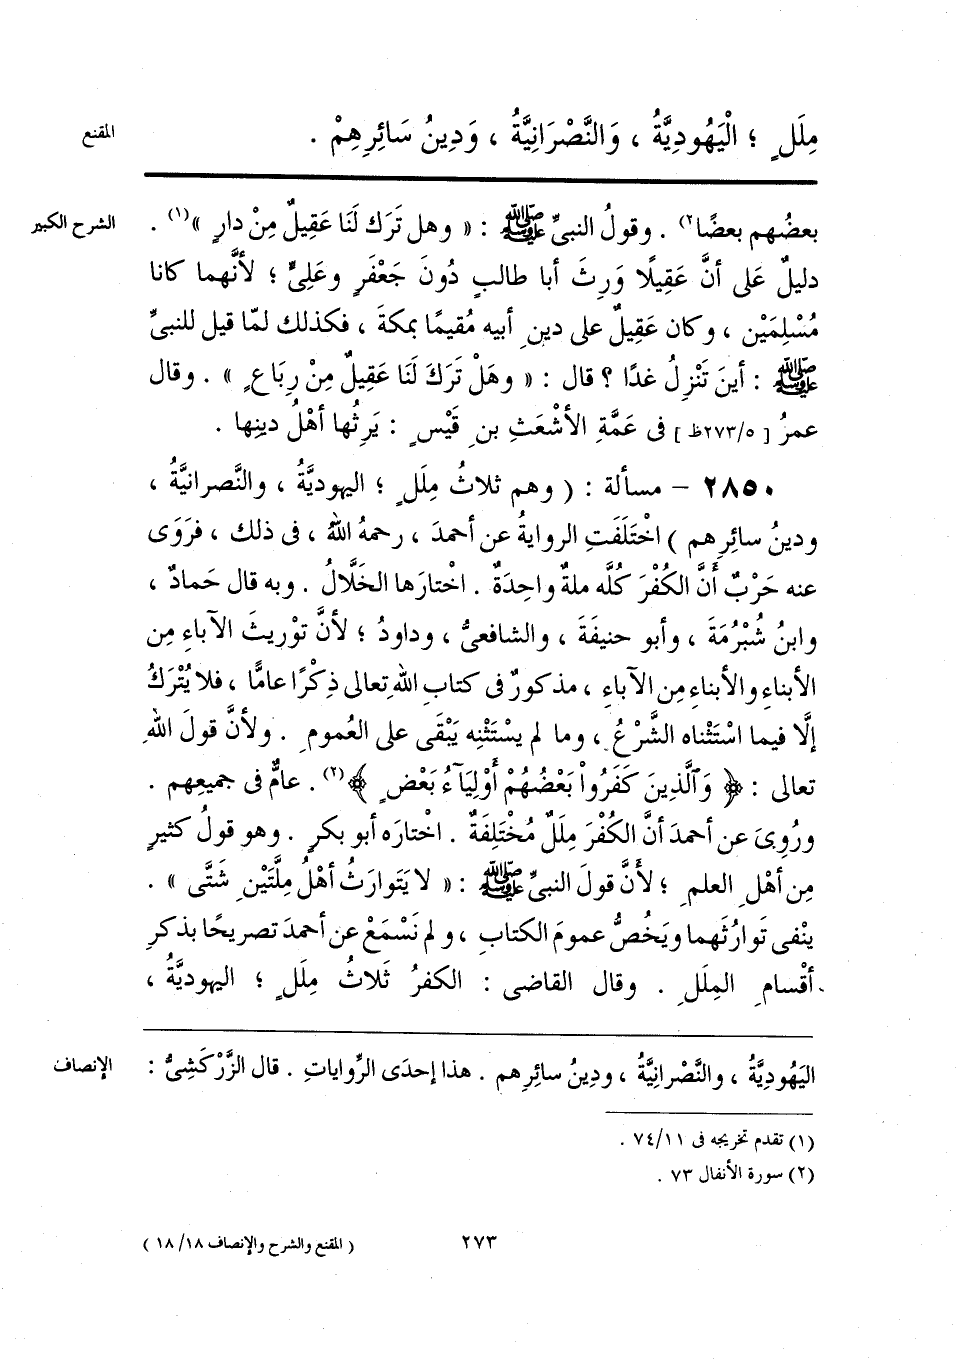 المقنع
مِلَلٍ ؛ الْيَهُودِيَّةُ ، وَالنَّصْرَانِيَّةُ ، وَدِينُ سَائِرِهِمْ .
الشرح الكبير
بعضُهم بعضًا⁽²⁾ . وقولُ النبىِّ ﷺ : « وهل تَرَك لَنَا عَقِيلٌ مِنْ دارٍ »⁽¹⁾ .
دليلٌ عَلى أنَّ عَقِيلًا وَرِثَ أبا طالبٍ دُونَ جَعْفَرٍ وعَلِىٍّ ؛ لأنَّهما كانا
مُسْلِمَيْن ، وكان عَقِيلٌ على دينِ أبيه مُقيمًا بمكةَ ، فكذلك لمّا قيل للنبىِّ
ﷺ : أينَ تَنْزِلُ غدًا ؟ قال : « وهَلْ تَرَكَ لَنَا عَقِيلٌ مِنْ رِبَاعٍ » . وقال
عمرُ [ ٢٧٣/٥ظ ] فى عَمَّةِ الأشْعَثِ بنِ قَيْسٍ : يَرِثُها أهْلُ دينِها .
٢٨٥٠ – مسألة : ( وهم ثلاثُ مِلَلٍ ؛ اليهوديَّةُ ، والنَّصرانيَّةُ ،
ودينُ سائِرِهم ) اخْتَلَفَتِ الروايةُ عن أحمدَ ، رحمهُ اللهُ ، فى ذلك ، فرَوَى
عنه حَرْبٌ أنَّ الكُفْرَ كُلَّه ملةٌ واحِدَةٌ . اخْتارَها الخَلَّالُ . وبه قال حَمادٌ ،
وابنُ شُبْرُمَةَ ، وأبو حنيفَةَ ، والشافعىُّ ، وداودُ ؛ لأنَّ توْريثَ الآباءِ مِن
الأبناءِ والأبناءِ مِن الآباءِ ، مذكورٌ فى كتاب اللهِ تعالى ذِكْرًا عامًّا ، فلا يُتْرَكُ
إلَّا فيما اسْتَثْناه الشَّرْعُ ، وما لم يسْتَثْنِه يَبْقَى على العُمومِ . ولأنَّ قولَ اللهِ
تعالى : ﴿ وَٱلَّذِينَ كَفَرُواْ بَعْضُهُمْ أَوْلِيَآءُ بَعْضٍ ﴾⁽²⁾ . عامٌّ فى جميعِهم .
ورُوِىَ عن أحمدَ أنَّ الكُفْرَ مِلَلٌ مُخْتَلِفَةٌ . اخْتارَه أبو بكرٍ . وهو قولُ كثيرٍ
مِن أهْلِ العلمِ ؛ لأَنَّ قولَ النبىِّ ﷺ : « لا يَتَوارَثُ أهْلُ مِلَّتَيْنِ شَتَّى » .
ينْفى تَوارُثَهما ويَخُصُّ عمومَ الكتابِ ، ولم نَسْمَعْ عن أحمدَ تصريحًا بذكرِ
أقْسامِ المِلَلِ . وقال القاضى : الكفرُ ثَلاثُ مِلَلٍ ؛ اليهوديَّةُ ،
الإنصاف
اليَهُودِيَّةُ ، والنَّصْرانِيَّةُ ، ودِينُ سائِرِهم . هذا إحدَى الرِّواياتِ . قال الزَّرْكَشِىُّ :
(١) تقدم تخريجه فى ٧٤/١١ .
(٢) سورة الأنفال ٧٣ .
٢٧٣
( المقنع والشرح والإنصاف ١٨/١٨ )